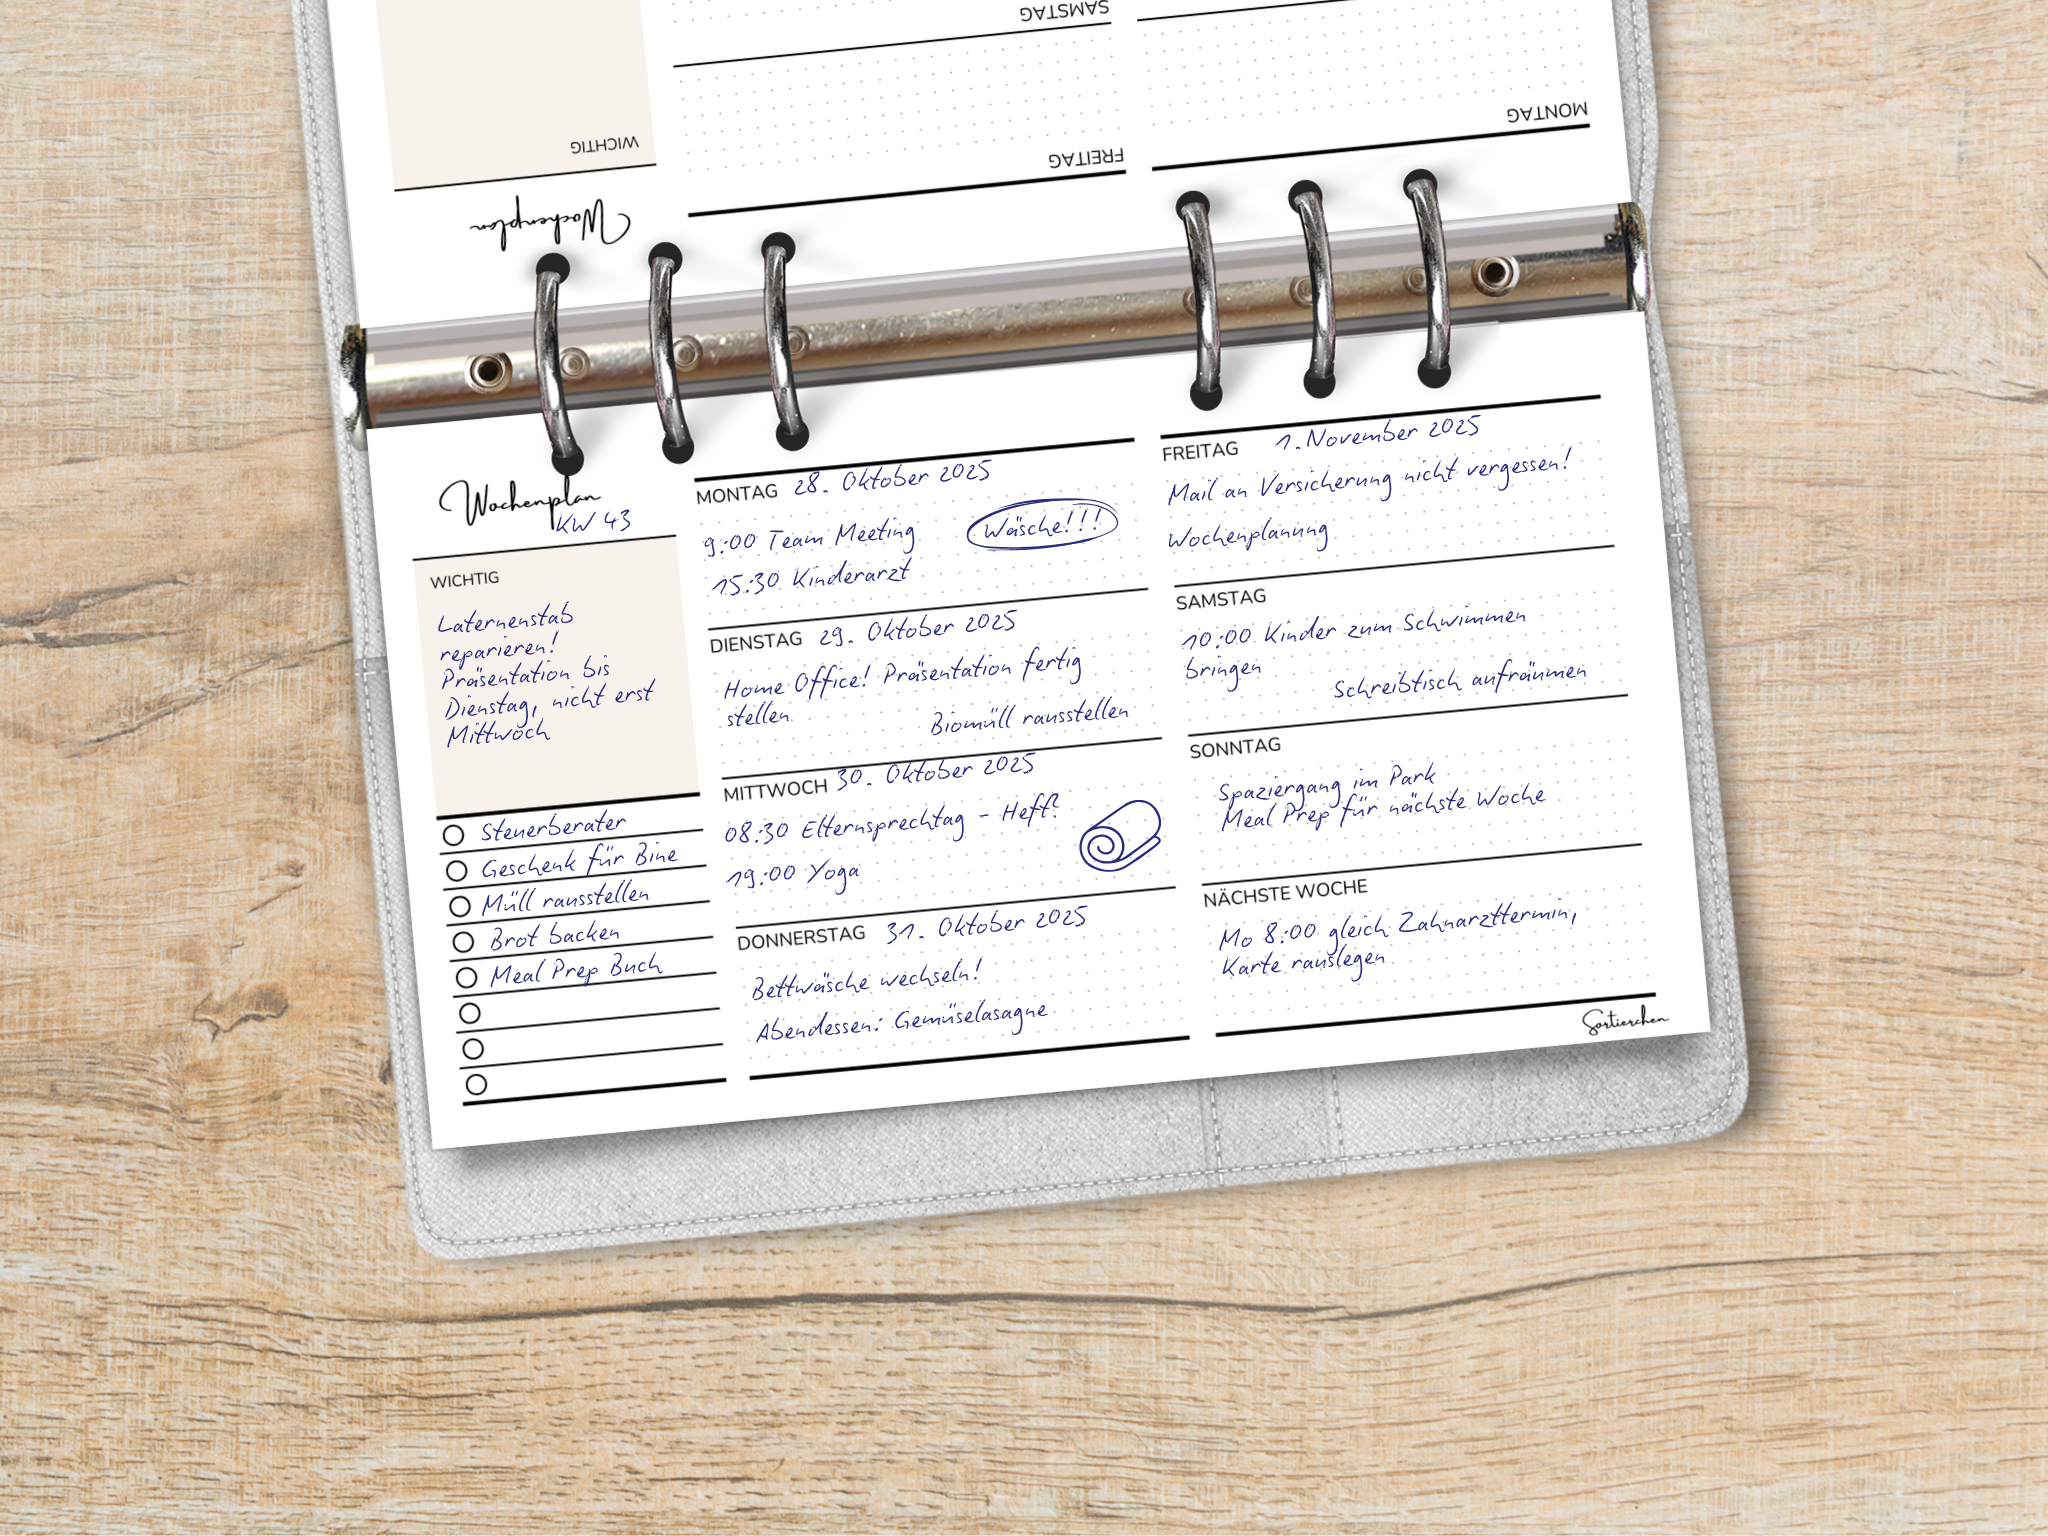 SAMSTAG
MONTAG
FREITAG
WICHTIG
Wochenplan
Wochenplan
KW 43
WICHTIG
Laternenstab
reparieren!
Präsentation bis
Dienstag, nicht erst
Mittwoch
Steuerberater
Geschenk für Bine
Müll rausstellen
Brot backen
Meal Prep Buch
MONTAG 28. Oktober 2025
9:00 Team Meeting
Wäsche!!!
15:30 Kinderarzt
DIENSTAG 29. Oktober 2025
Home Office! Präsentation fertig
stellen
Biomüll rausstellen
MITTWOCH 30. Oktober 2025
08:30 Elternsprechtag - Heft?
19:00 Yoga
DONNERSTAG 31. Oktober 2025
Bettwäsche wechseln!
Abendessen: Gemüselasagne
FREITAG 1. November 2025
Mail an Versicherung nicht vergessen!
Wochenplanung
SAMSTAG
10:00 Kinder zum Schwimmen
bringen
Schreibtisch aufräumen
SONNTAG
Spaziergang im Park
Meal Prep für nächste Woche
NÄCHSTE WOCHE
Mo 8:00 gleich Zahnarzttermin,
Karte rauslegen
Sortierchen